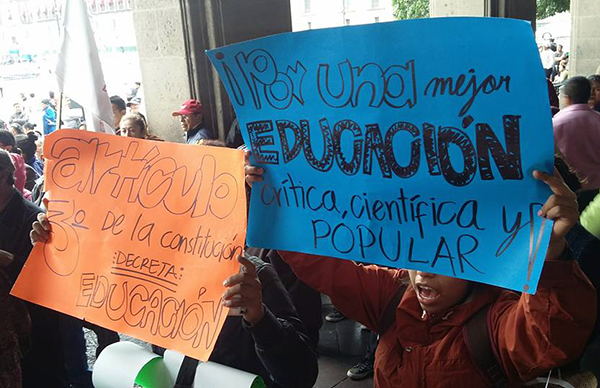 artículo
3º DE la constitución
¡DECRETA:
EDUCACIÓN
¡¡Por una mejor
EDUCACIÓN
crítica, científica y
POPULAR!